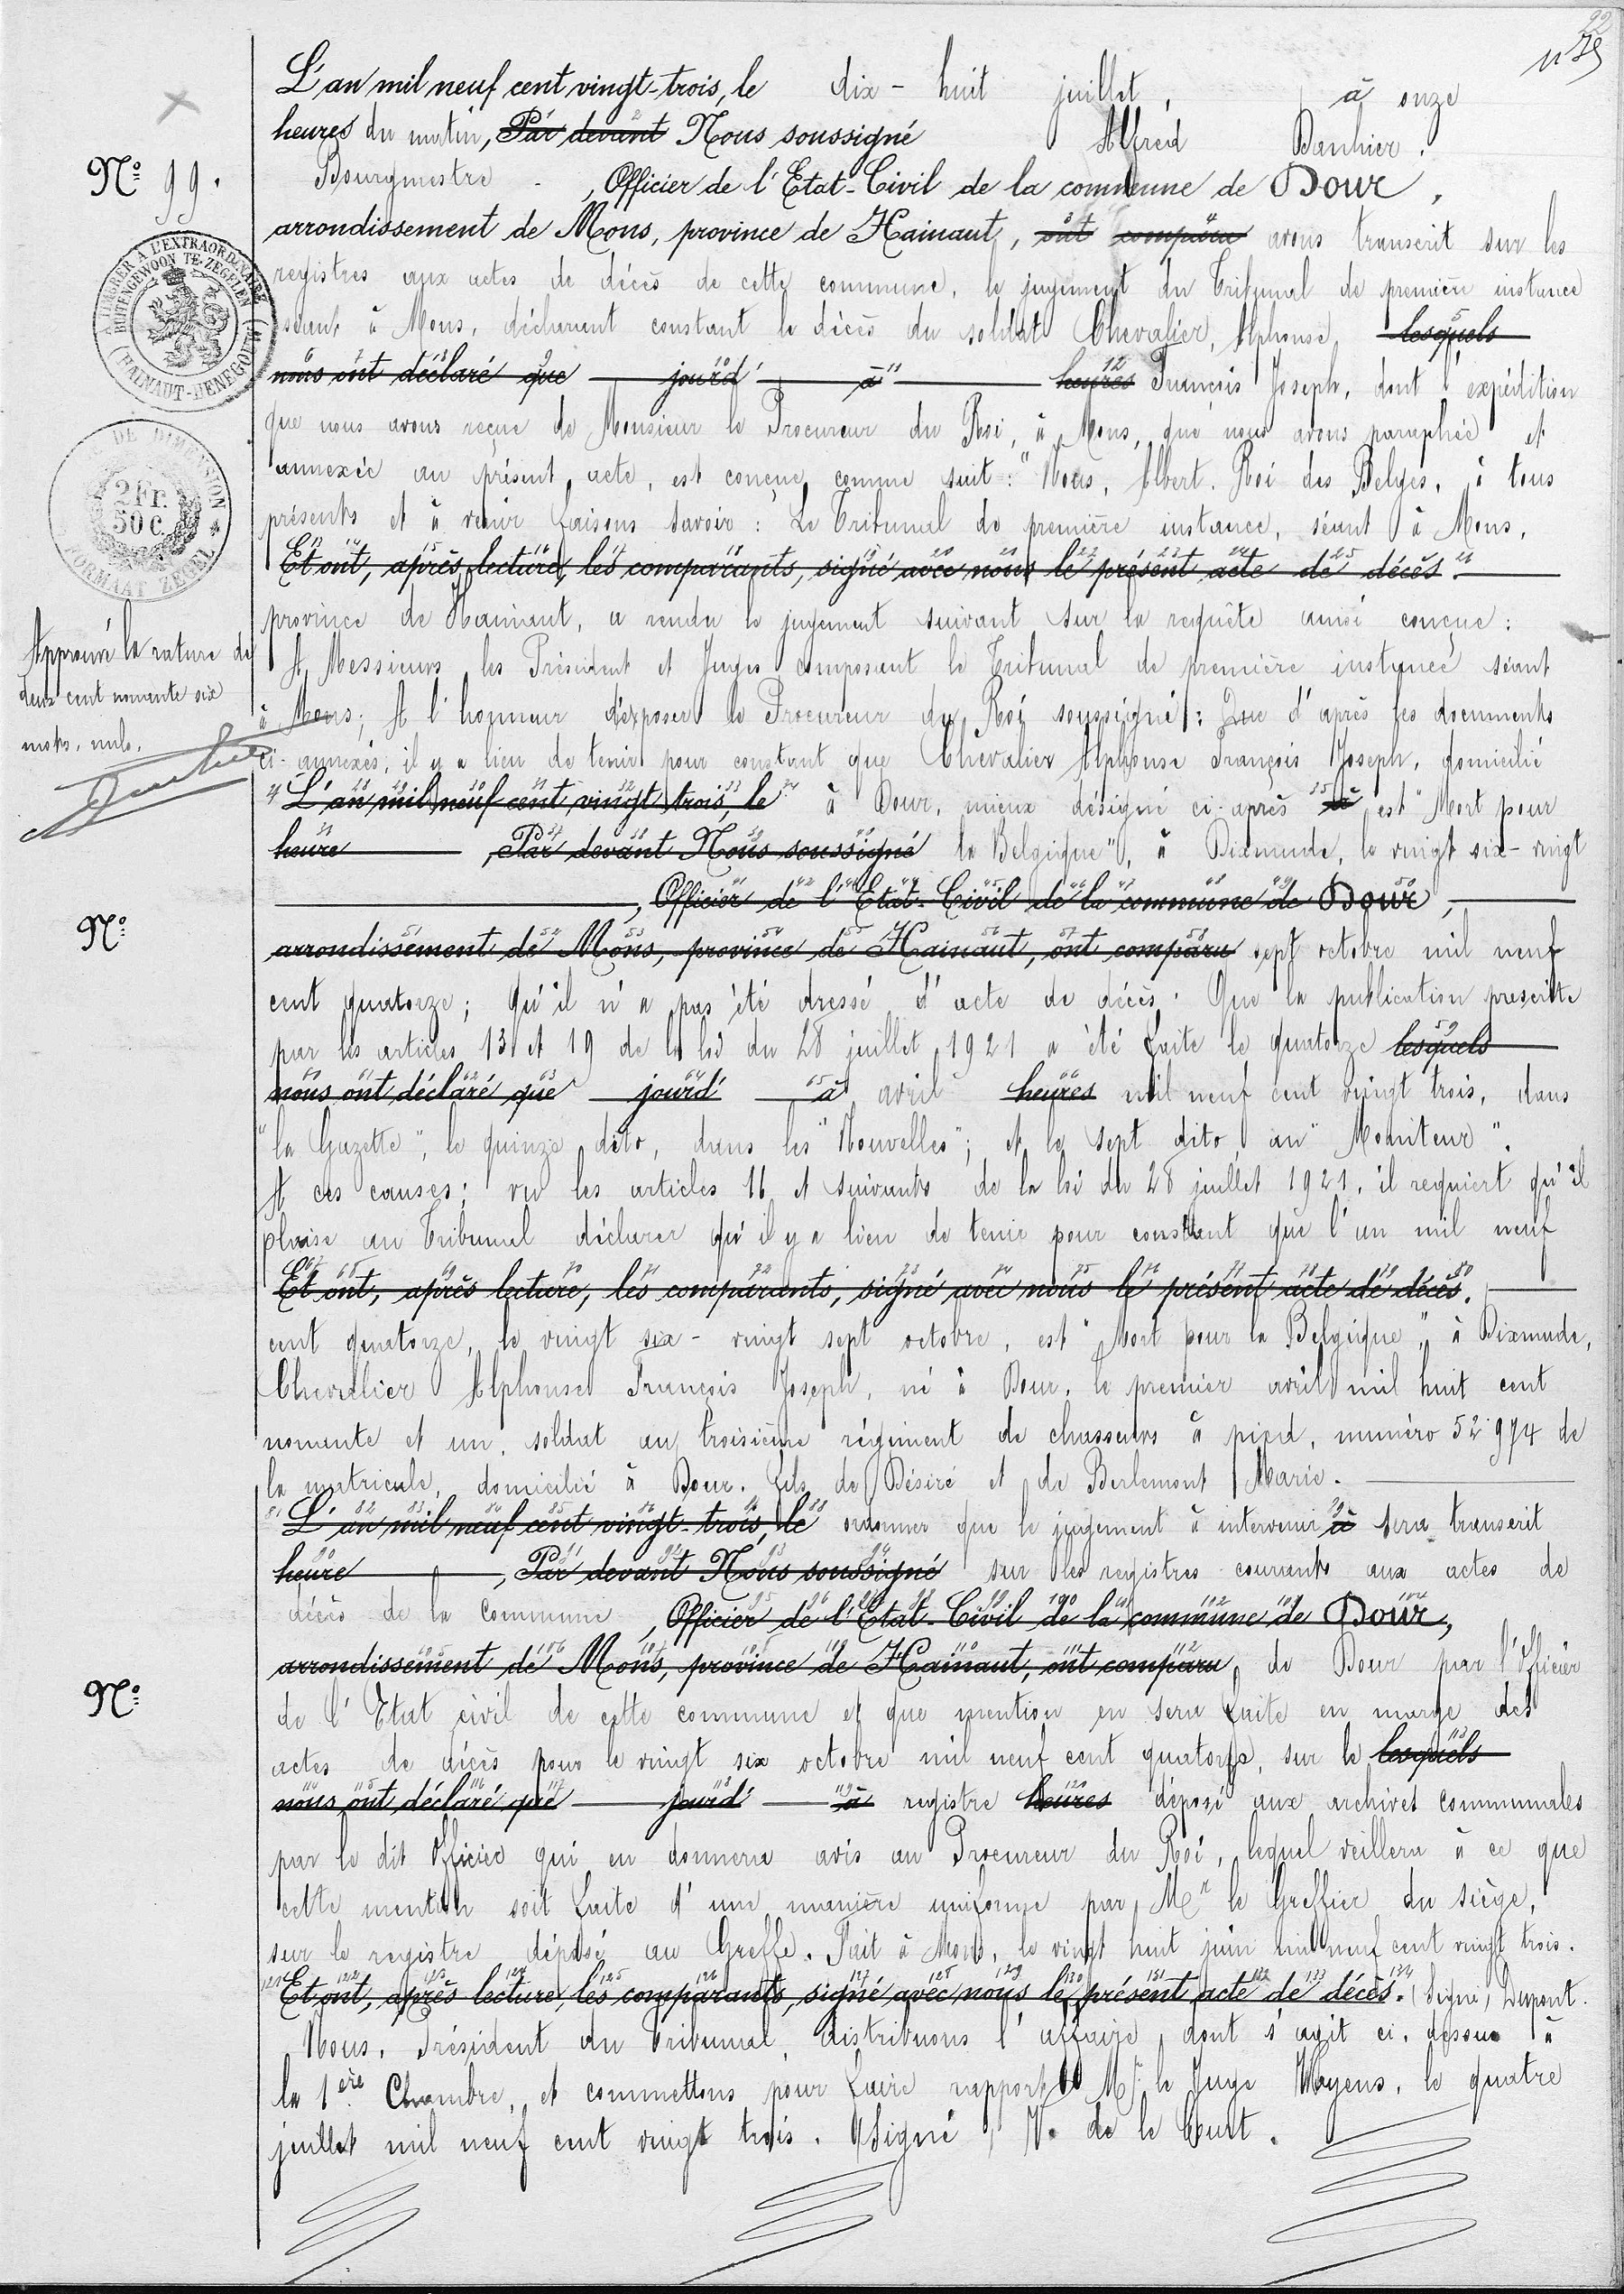 22
n 79
L'an mil neuf cent vingt-trois, le dix-huit juillet, à onze
heures du matin, Par devant Nous soussigné Alfred Danhier.
N° 99. Bourgmestre, Officier de l'Etat-Civil de la commune de Dour,
arrondissement de Mons, province de Hainaut, ont comparu avons transcrit sur les
registres aux actes de décès de cette commune, le jugement du Tribunal de première instance
séant à Mons, déclarant constant le décès du soldat Chevalier, Alphonse, lesquels
nous ont déclaré que jourd' à heures François Joseph, dont l'expédition
que nous avons reçue de Monsieur le Procureur du Roi, à Mons, que nous avons paraphée et
annexée au présent acte, est conçue comme suit : "Nous, Albert, Roi des Belges, à tous
présents et à venir faisons savoir : Le Tribunal de première instance, séant à Mons,
Et ont, après lecture, les comparants, signé avec nous le présent acte de décès.
province de Hainaut, a rendu le jugement suivant sur la requête ainsi conçue :
A Messieurs les Président et Juges composant le Tribunal de première instance séant
à Mons; A l'honneur d'exposer le Procureur du Roi soussigné : Que d'après les documents
ci-annexés, il y a lieu de tenir pour constant que Chevalier Alphonse François Joseph, domicilié
L'an mil neuf cent vingt-trois, le à Dour, mieux désigné ci-après à est "Mort pour
heure, Par devant Nous soussigné la Belgique", à Dixmude, le vingt six-vingt
, Officier de l'Etat-Civil de la commune de Dour,
N°
arrondissement de Mons, province de Hainaut, ont comparu sept octobre mil neuf
cent quatorze; qu'il n'a pas été dressé d'acte de décès. Que la publication prescrite
par les articles 13 et 19 de la loi du 28 juillet 1921 a été faite le quatorze lesquels
nous ont déclaré que jourd' à avril heures mil neuf cent vingt trois, dans
"la Gazette", le quinze dito, dans les "Nouvelles"; et le sept dito, au "Moniteur".
A ces causes; vu les articles 16 et suivants de la loi du 28 juillet 1921, il requiert qu'il
plaise au Tribunal déclarer qu'il y a lieu de tenir pour constant que l'an mil neuf
Et ont, après lecture, les comparants, signé avec nous le présent acte de décès.
cent quatorze, le vingt six-vingt sept octobre, est "Mort pour la Belgique", à Dixmude,
Chevalier Alphonse François Joseph, né à Dour, le premier avril mil huit cent
nonante et un, soldat au troisième régiment de chasseurs à pied, numéro 52974 de
la matricule, domicilié à Dour, fils de Désiré et de Berlemont Marie.
L'an mil neuf cent vingt-trois, le ordonner que le jugement à intervenir à sera transcrit
heure, Par devant Nous soussigné sur les registres courants aux actes de
décès de la commune, Officier de l'Etat-Civil de la commune de Dour,
arrondissement de Mons, province de Hainaut, ont comparu de Dour par l'Officier
N°
de l'Etat civil de cette commune et que mention en sera faite en marge des
actes de décès pour le vingt six octobre mil neuf cent quatorze, sur le lesquels
nous ont déclaré que jourd' à registre heures déposé aux archives communales
par le dit Officier qui en donnera avis au Procureur du Roi, lequel veillera à ce que
cette mention soit faite d'une manière uniforme par Mr le Greffier du siège,
sur le registre déposé au Greffe. Fait à Mons, le vingt huit juin mil neuf cent vingt trois.
Et ont, après lecture, les comparants, signé avec nous le présent acte de décès. (Signé) Dupont.
Nous, Président du Tribunal, distribuons l'affaire dont s'agit ci-dessus à
la 1ère Chambre, et commettons pour faire rapport Mr le Juge le quatre
juillet mil neuf cent vingt trois. (Signé) V. de le Court.
A TIMBRER A L'EXTRAORDINAIRE
BUITENGEWOON TE ZEGELEN
(HAINAUT-HENEGOUW)
DE DIMENSION
2 Fr.
50 c.
FORMAAT ZEGEL
Approuvé la rature de
deux cent nonante six
mots, nuls.